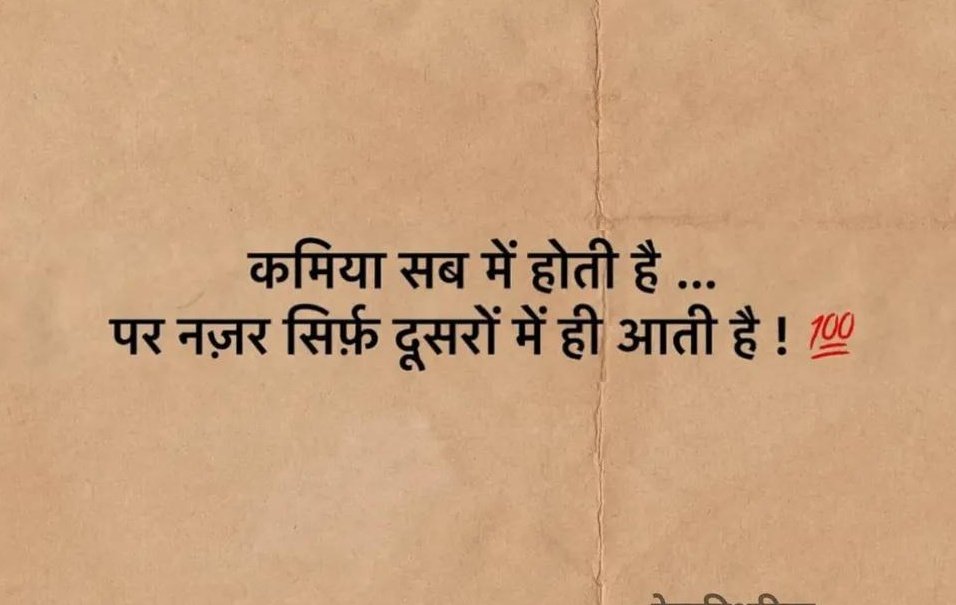 कमिया सब में होती है ...
पर नज़र सिर्फ़ दूसरों में ही आती है ! 💯